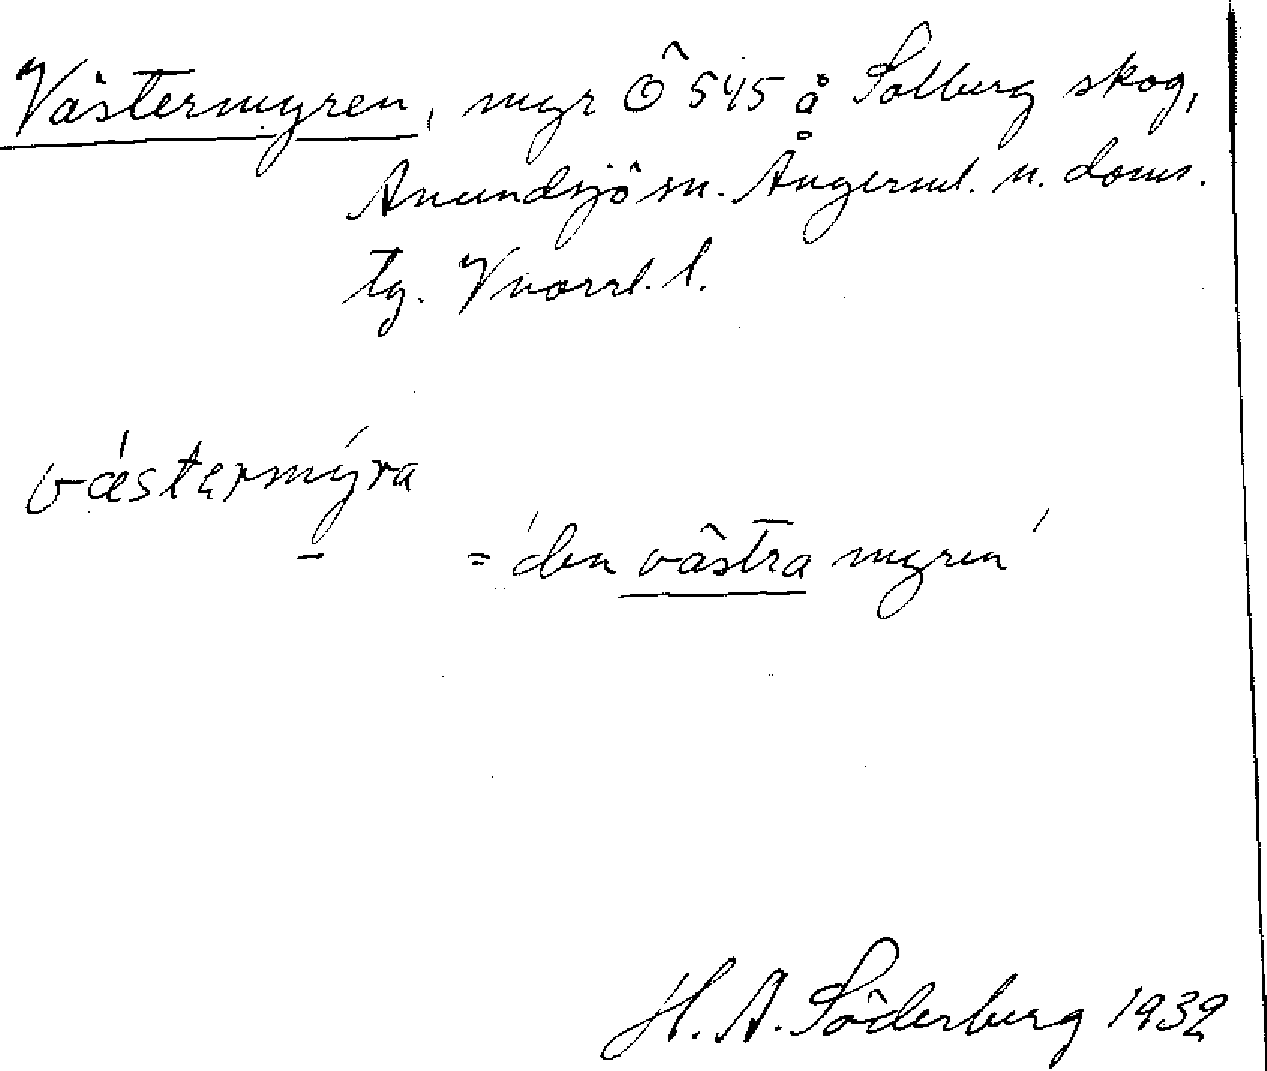 Västermyren, myr Ö 545 å Solberg skog,
Anundsjö sn. Ångerml. n. doms.
tg. Vnorrl. l.
västermýra
= 'den västra myren'
H. A. Söderberg 1932